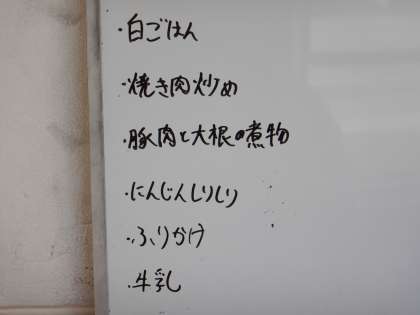 ・白ごはん
・焼き肉炒め
・豚肉と大根の煮物
・にんじんしりしり
・ふりかけ
・牛乳